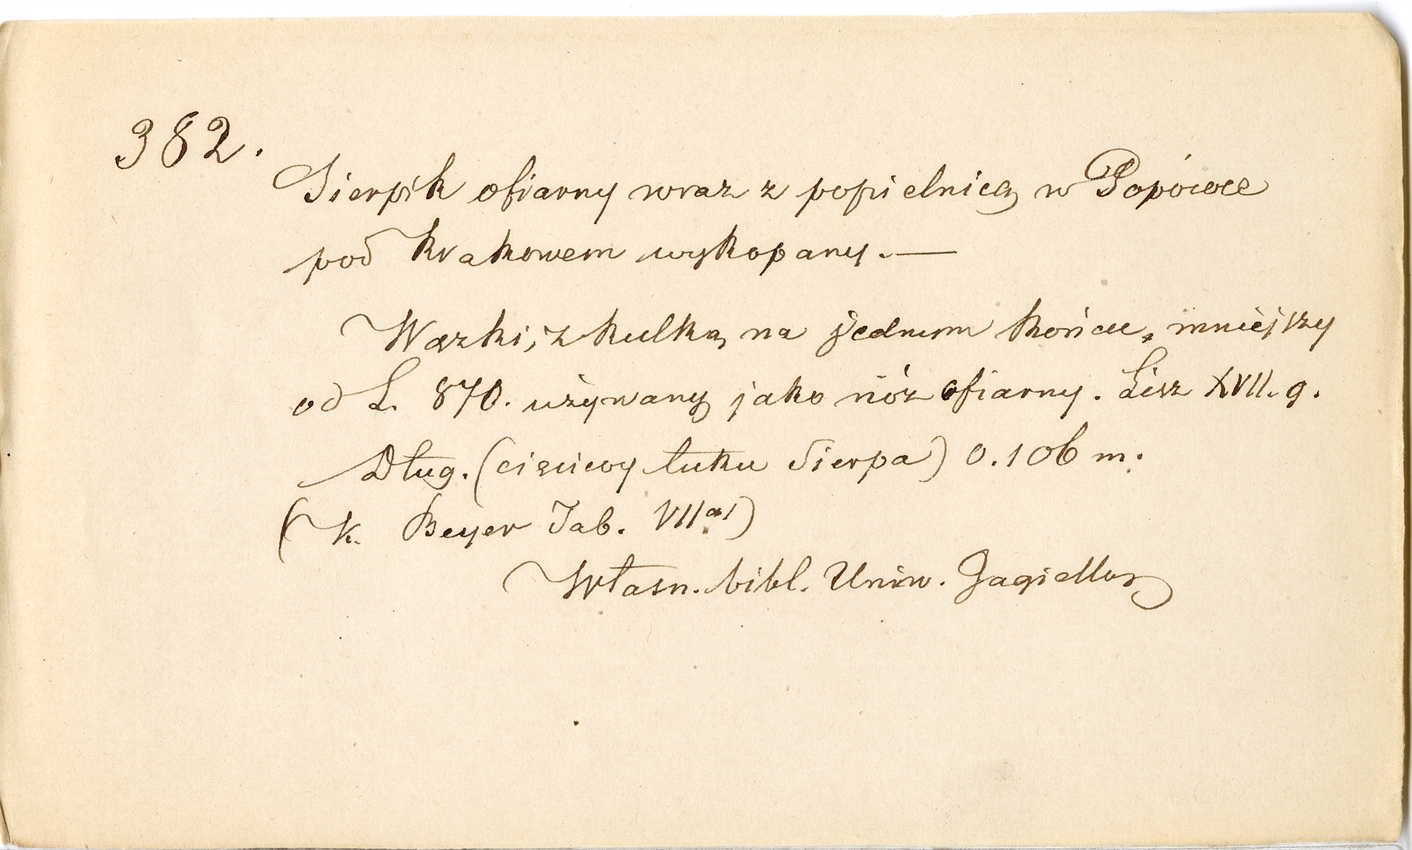 382.
Sierpik ofiarny wraz z popielnicą w Popówce
pod Krakowem wykopany. —
Wązki, z kulką na jednym końcu, mniejszy
od L. 870. używany jako nóż ofiarny. Lisz XVII. g.
Dług. (cięciwy łuku sierpa) 0.106 m.
(K. Beyer Tab. VII
Własn. bibl. Uniw. Jagiellon